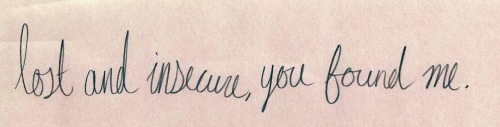 lost and insecure, you found me.